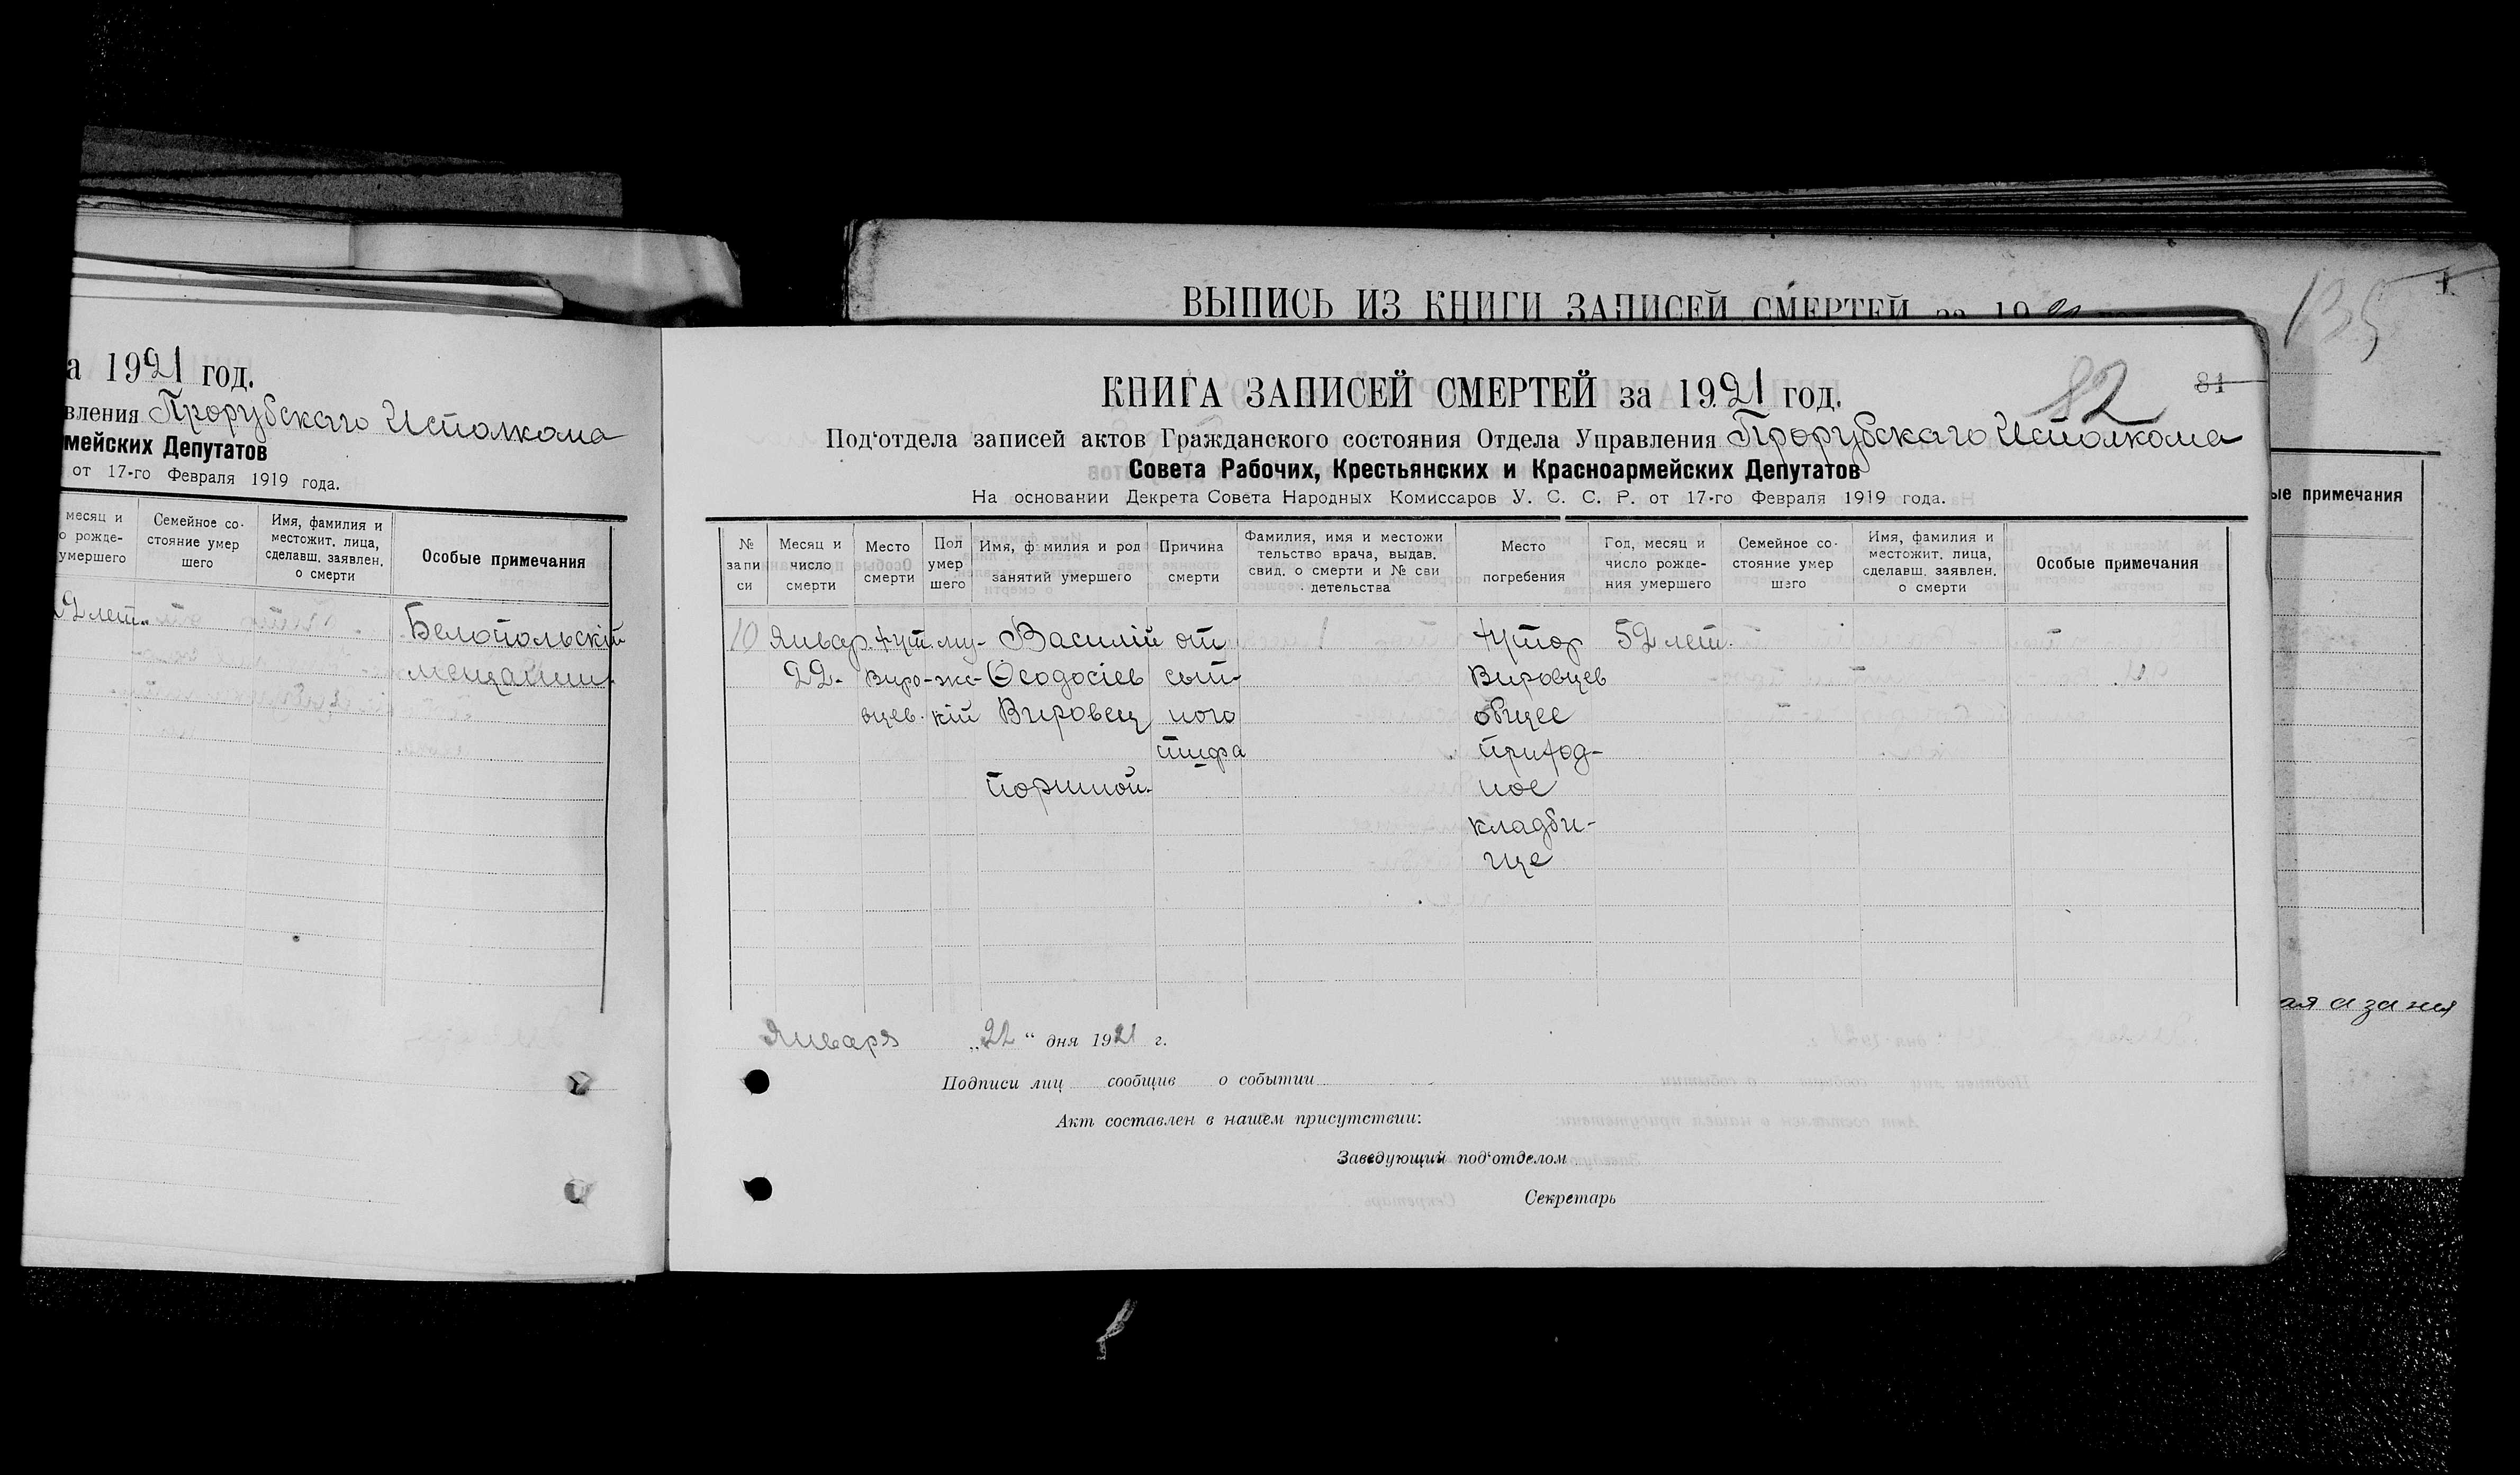 ВЫПИСЬ ИЗ КНИГИ ЗАПИСЕЙ СМЕРТЕЙ за 19
135
ые примечания
а 1921 год.
вления Прорубскаго Исполкома
мейских Депутатов
от 17-го Февраля 1919 года.
месяц и
о рожде-
умершего
Семейное со-
стояние умер
шего
Имя, фамилия и
местожит. лица,
сделавш. заявлен.
о смерти
Особые примечания
лет.
Белопольскій
мещанин.
КНИГА ЗАПИСЕЙ СМЕРТЕЙ за 1921 год.
82
81
Под‘отдела записей актов Гражданского состояния Отдела Управления Прорубскаго Исполкома
Совета Рабочих, Крестьянских и Красноармейских Депутатов
На основании Декрета Совета Народных Комиссаров У. С. С. Р. от 17-го Февраля 1919 года.
№
запи
си
Месяц и
число
смерти
Место
смерти
Пол
умер
шего
Имя, фамилия и род
занятий умершего
Причина
смерти
Фамилия, имя и местожи
тельство врача, выдав.
свид. о смерти и № сви
детельства
Место
погребения
Год, месяц и
число рожде-
ния умершего
Семейное со-
стояние умер
шего
Имя, фамилия и
местожит. лица,
сделавш. заявлен.
о смерти
Особые примечания
10
Январ.
22.
хут.
Виро-
вцев.
му-
жс-
кій
Василій
Ѳеодосіев
Вировец
портной.
от
сып-
ного
тифа
хутор
Вировцев
общее
приход-
ное
кладби-
ще
52 лет.
Января „22“ дня 1921 г.
Подписи лиц сообщив о событии
Акт составлен в нашем присутствии:
Заведующий под‘отделом
Секретарь